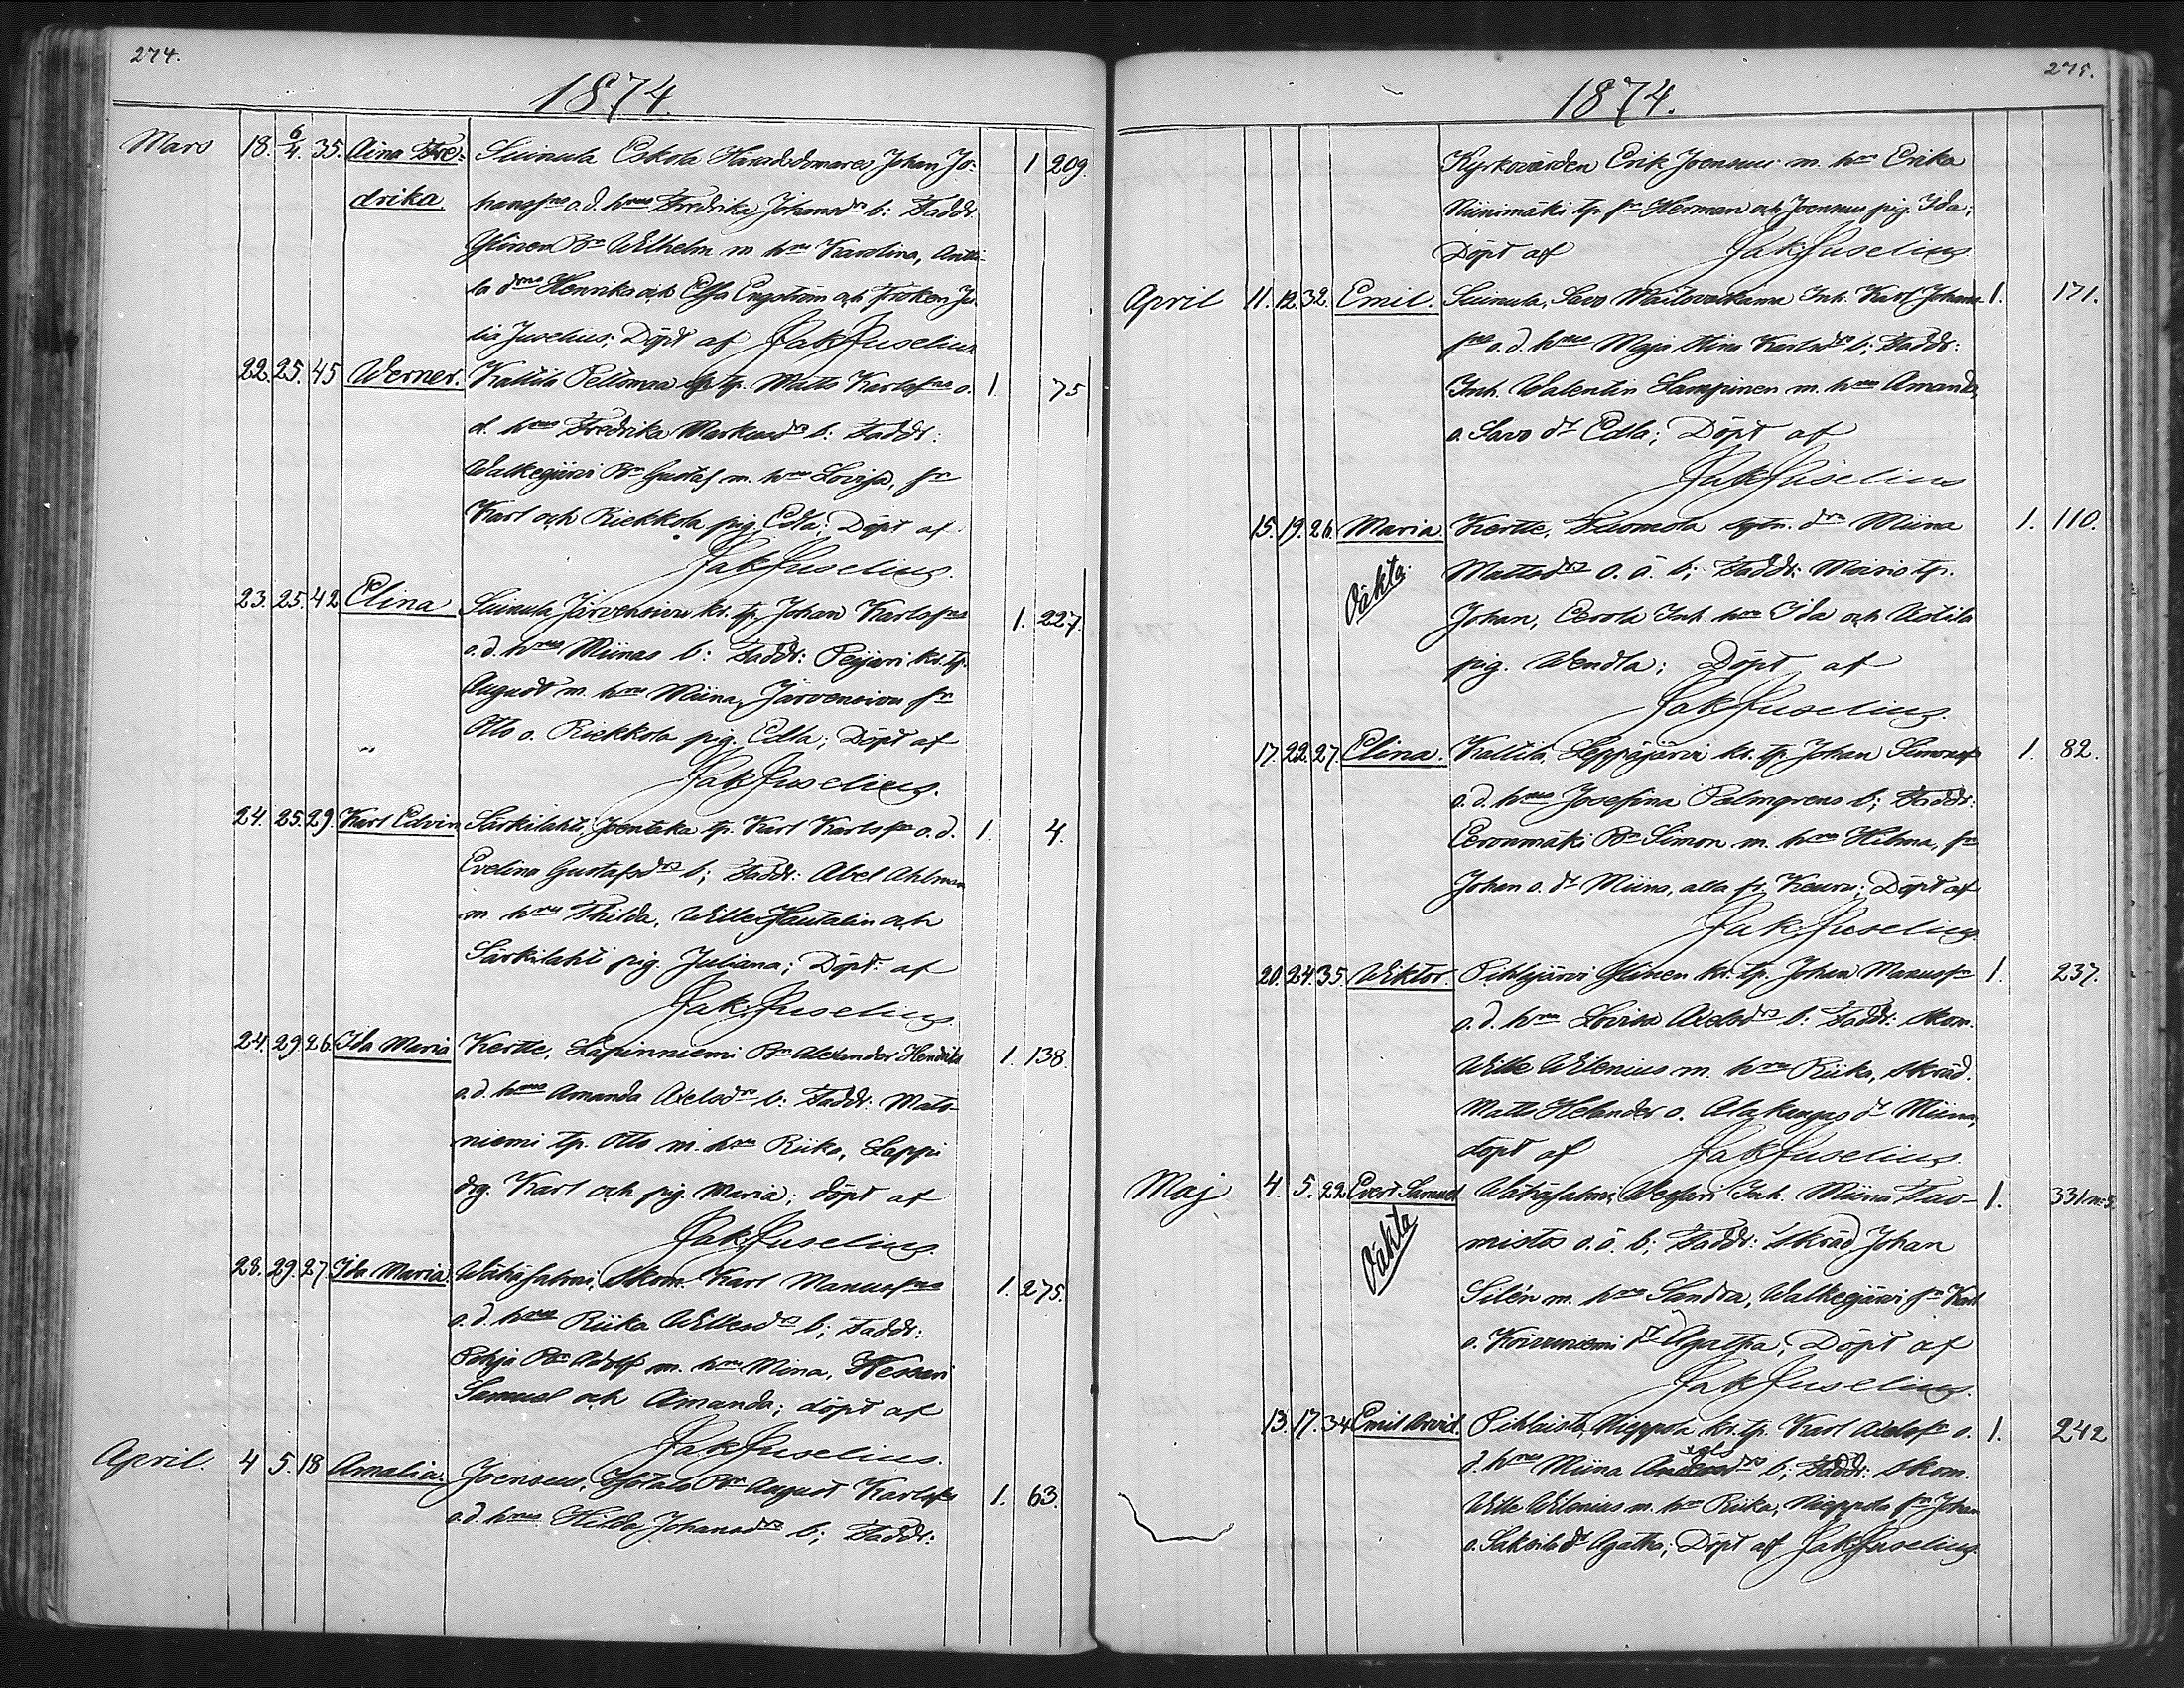 274.
1874.
Mars 18. 6/4. 35. Aina Fre- Suinula Eskola Häradsdomares Johan Jo- 1 209.
drika. hansfns o. d. hns Fredrika Johansdrs b: Faddr:
Ylinen Bn Wilhelm m. hru Karolina, Antti-
la Henrika och Elfa Engström och Fröken Ju-
lia Juselius; Döpt af Jak Juselius.
22. 25. 45 Werner. Kattila Peltomaa tp. Matts Karlsfns o. 1. 75
d. hrus Fredrika Markusdrs b: Faddr:
Walkejärvi Bn Gustaf m. hru Lovisa, sn
Karl och Riekkola pig. Edla; Döpt af
Jak Juselius.
23. 25. 42 Elina Suinula Järvensivu ks. tp. Johan Karlsfns 1. 227.
o. d. hrus Miinas b: Faddr: Peijari ks. tp.
August m. hru Miina, Järvensivu sn
Otto o. Riekkola pig. Edla; Döpt af
Jak Juselius.
24. 25. 29. Karl Edvin Särkilahti, Joentaka tp. Karl Karlsfns o. d. 1. 4.
Evelina Gustafsdrs b; Faddr: Abel Ahlman
m. hru Thilda, Wille Hautalin och
Särkilahti pig. Juliana; Döpt af
Jak Juselius.
24. 29 26 Ida Maria Kertte, Lapinniemi Bn Alexander Hendriks 1. 138.
o. d. hrus Amanda Axelsdrs b: Faddr: Mato-
niemi tp. Otto m. hru Riika, Lappi
drg. Karl och pig. Maria; döpt af
Jak Juselius.
28. 29. 27. Ida Maria. Wähäsalmi, Skom. Karl Manusfns 1. 275.
o. d. hrus Riika Willesdrs b; Faddr:
Pohja Bn Adolf m. hru Mina, Wessari
Samuel och Amanda; döpt af
Jak Juselius.
April. 4 5. 18 Amalia. Joensuu, Yrtala Bn August Karlsfns 1. 63.
o. d. hrus Hilda Johansdrs b; Faddr:
275.
1874.
Kyrkovärden Erik Joensuu m. hru Erika
Niinimäki tp. sn Herman och Joensuu pig. Ida;
Döpt af Jak Juselius
April 11. 12. 32. Emil. Suinula, Savo Inh. Karl Johans- 1. 171.
fns o. d. hrus Maja Stina Karlsdrs b; Faddr:
Inh. Walentin Lampinen m. hru Amanda,
o. Savo dr Edla; Döpt af
Jak Juselius
15. 19. 26. Maria. Kertte, Tuomola sytn. drs Miina 1. 110.
Oäkta. Mattsdrs o. ä. b; Faddr: Moisio tp.
Johan, Eerola Inh. hru Ida och Astila
pig. Wendla; Döpt af
Jak Juselius.
17. 22. 27. Elina. Kattila, Leppäjärvi ks. tp. Johan Simonsf 1. 82.
o. d. hrus Josefina Palmgrens b; Faddr:
Eeronmäki Bn Simon m. hru Hilma, sn
Johan o. dr Miina, alla fr. Keuru; Döpt af
Jak Juselius
20. 24. 35. Wiktor. Pihlajärvi Ylinen ks. tp. Johan Manusfn 1. 237.
o. d. hru Lovisa Axelsdrs b: Faddr: Skom.
Wille Wilenius m. hru Riika, Skräd.
Matts Helander o. Alakangas dr Miina,
döpt af Jak Juselius.
Maj 4. 5. 22 Evert Samuel Wähäsalmi, Wessari Inh. Miina Tuo- 1. 331 n: 5.
Oäkta mistos o. ä. b; Faddr: Skräd Johan
Silén m. hru Sandra, Walkejärvi sn Karl
o. Koivuniemi dr Agatha; Döpt af
Jak Juselius.
13. 17. 34 Emil Arvid. Pihlaisto, Nieppola ks. tp. Karl Axelsfn o. 1. 242
d. hrus Miina b; Faddr: Skom.
Wille Wilenius m. hru Riika, Nieppola sn Johan
o. dr Agatha; Döpt af Jak Juselius.